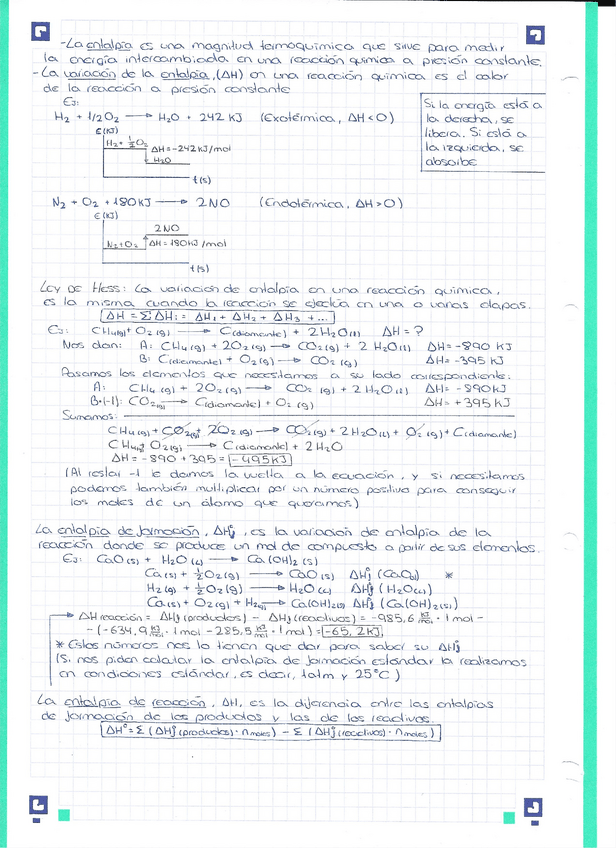 -La entalpía es una magnitud termoquímica que sirve para medir
la energía intercambiada en una reacción química a presión constante.
-La variación de la entalpía, (ΔH) en una reacción química es el calor
de la reacción a presión constante
Ej:
H₂ + 1/2O₂ ⟶ H₂O + 242 KJ (Exotérmica, ΔH<0)
Si la energía está a
la derecha, se
libera. Si está a
la izquierda, se
absorbe
E(KJ)
H₂+ ½O₂
ΔH=-242KJ/mol
H₂O
t(s)
N₂ + O₂ + 180KJ ⟶ 2NO (Endotérmica, ΔH>0)
E(KJ)
2NO
N₂+O₂ ΔH=180KJ/mol
t(s)
Ley de Hess: La variación de entalpía en una reacción química,
es la misma cuando la reacción se efectúa en una o varias etapas.
ΔH = ΣΔHᵢ = ΔH₁ + ΔH₂ + ΔH₃ + ...
Ej: CH₄(g)+ O₂(g) ⟶ C(diamante) + 2H₂O(l) ΔH=?
Nos dan: A: CH₄(g) + 2O₂(g) ⟶ CO₂(g) + 2H₂O(l) ΔH=-890 KJ
B: C(diamante) + O₂(g) ⟶ CO₂(g) ΔH=-395 KJ
Pasamos los elementos que necesitamos a su lado correspondiente:
A: CH₄(g) + 2O₂(g) ⟶ CO₂(g) + 2H₂O(l) ΔH=-890KJ
B·(-1): CO₂(g) ⟶ C(diamante) + O₂(g) ΔH=+395KJ
Sumamos:
CH₄(g) + CO₂(g) + 2O₂(g) ⟶ CO₂(g) + 2H₂O(l) + O₂(g) + C(diamante)
CH₄(g) + O₂(g) ⟶ C(diamante) + 2H₂O
ΔH = -890 + 395 = -495KJ
(Al restar -1 le damos la vuelta a la ecuación, y si necesitamos
podemos también multiplicar por un número positivo para conseguir
los moles de un átomo que queramos)
La entalpía de formación, ΔHf°, es la variación de entalpía de la
reacción donde se produce un mol de compuesto a partir de sus elementos.
Ej: CaO(s) + H₂O(l) ⟶ Ca(OH)₂(s)
Ca(s) + ½O₂(g) ⟶ CaO(s) ΔHf° (CaO(s)) *
H₂(g) + ½O₂(g) ⟶ H₂O(l) ΔHf° (H₂O(l))
Ca(s) + O₂(g) + H₂(g) ⟶ Ca(OH)₂(s) ΔHf° (Ca(OH)₂(s))
ΔH reacción = ΔHf°(productos) - ΔHf°(reactivos) = -985,6 KJ/mol · 1 mol -
-(-634,9 KJ/mol · 1mol -285,5 KJ/mol · 1mol) = -65,2KJ
* Estos números nos la tienen que dar para saber su ΔHf°
(Si nos piden calcular la entalpía de formación estándar la realizamos
en condiciones estándar, es decir, 1atm y 25°C)
La entalpía de reacción, ΔH, es la diferencia entre las entalpías
de formación de los productos y las de los reactivos.
ΔH° = Σ (ΔHf°(productos) · nmoles) - Σ (ΔHf°(reactivos) · nmoles)